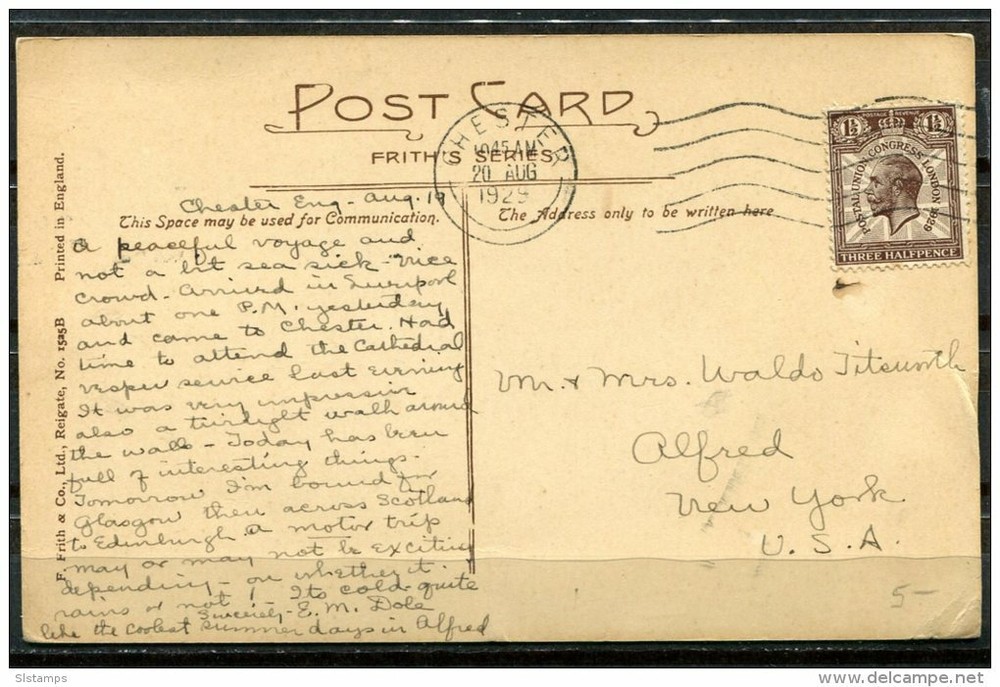 POST CARD
FRITH'S SERIES
CHESTER
1045 AM
20 AUG
1929
1½ POSTAGE REVENUE 1½
POSTAL UNION CONGRESS LONDON 1929
THREE HALFPENCE
Chester Eng - Aug. 19
This Space may be used for Communication.
The Address only to be written here
A peaceful voyage and
not a bit sea sick - nice
crowd - Arrived in Liverpool
about one P.M. yesterday
and came to Chester. Had
time to attend the Cathedral
vesper service last evening
It was very impressive
also a twilight walk around
the walls - Today has been
full of interesting things.
Tomorrow I'm bound for
Glasgow then across Scotland
to Edinburgh a motor trip
may or may not be exciting
depending - on whether it
rains or not! Its cold quite
like the coolest summer days in Alfred
Sincerely - E. M. Dole
Mr. & Mrs. Waldo Titsworth
Alfred
New York
U. S. A.
5-
F. Frith & Co., Ltd., Reigate, No. 1525B Printed in England.
Slstamps
www.delcampe.net